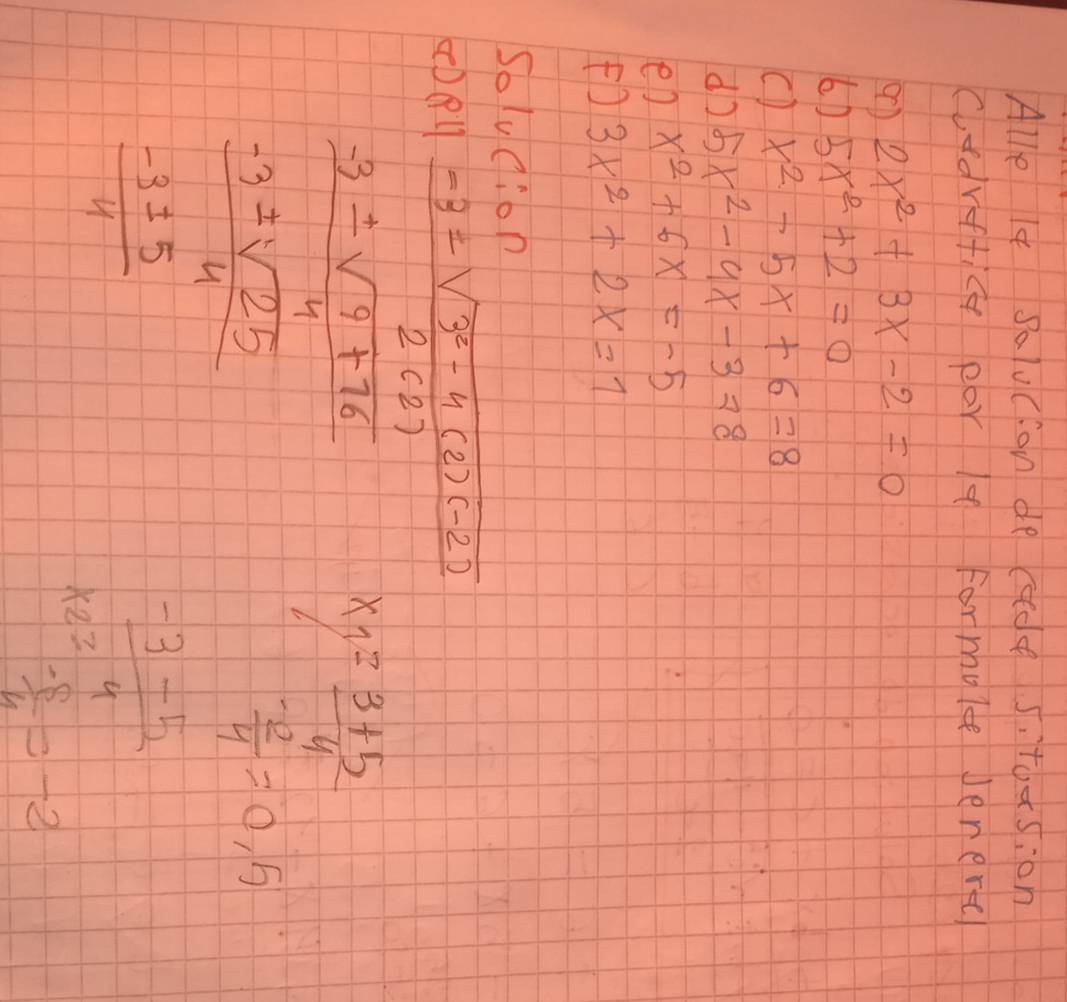 Alle la solucion de cada situasion
Cuadratica por la Formula Jeneral
a) 2x² + 3x - 2 = 0
b) 5x² + 2 = 0
c) x² - 5x + 6 = 8
d) 5x² - 4x - 3 = 8
e) x² + 6x = -5
F) 3x² + 2x = 1
Solucion
-3 ± √3² - 4 (2) (-2)
2 (2)
-3 ± √9 + 16
4
-3 ± √25
4
-3 ± 5
4
x1= 3 + 5
4
4 = 0,5
-3 - 5
4
x2= -8
4 = -2